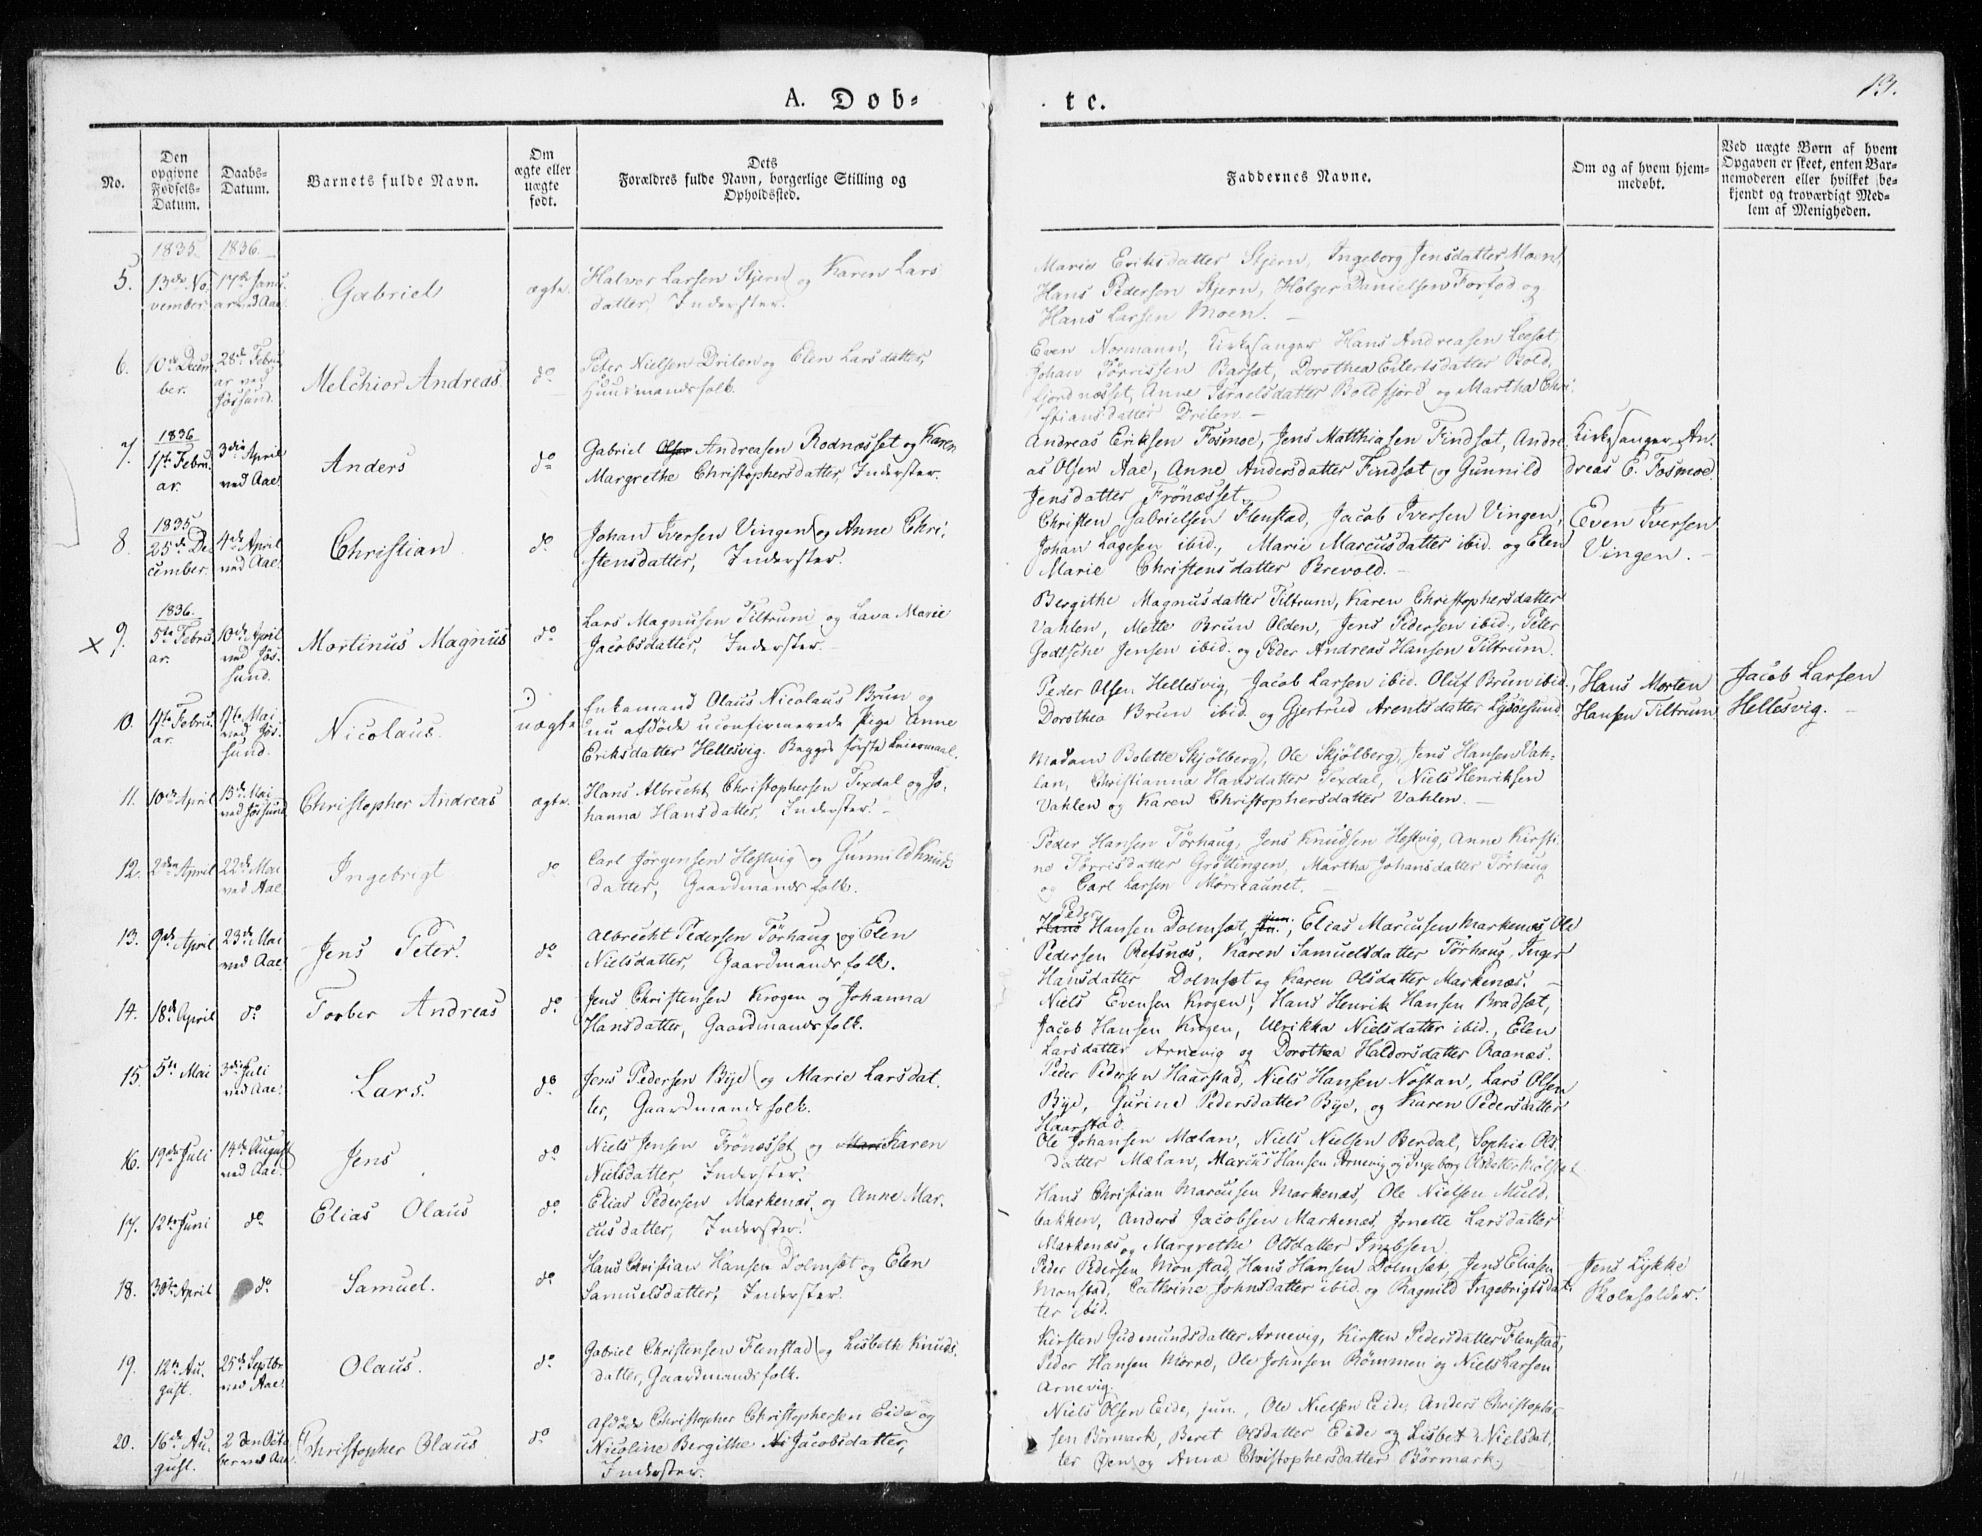 A. Døb-
te.
13.
No.
Den opgivne Fødsels-Datum.
Daabs-Datum.
Barnets fulde Navn.
Om ægte eller uægte født.
Dets Forældres fulde Navn, borgerlige Stilling og Opholdssted.
Faddernes Navne.
Om og af hvem hjemmedøbt.
Ved uægte Børn af hvem Opgaven er skeet, enten Barnemoderen eller hvilket bekjendt og troværdigt Medlem af Menigheden.
1835. 1836.
5. 13de November. 17de Januar ved Aae. Gabriel ægte.
Halvor Larsen Stjern og Karen Lars
datter, Inderster.
Marie Eriksdatter Stjern, Ingeborg Jensdatter Moen,
Hans Pedersen Stjern, Holger Danielsen Fortod og
Hans Larsen Moen. –
6. 10de December. 28de Februar ved Jøssund. Melchior Andreas do
Peter Nielsen Drilen og Elen Larsdatter,
Huusmandsfolk.
Even Normann, Kirkesanger Hans Andreasen Leeset,
Johan Tørrissen Barset, Dorothea Eilertsdatter Bold
fjordnæsset, Anne Israelsdatter Boldfjord og Martha Chri-
stiansdatter Drilen. –
7. 1836 1ste Februar. 3die April ved Aae. Anders do
Gabriel Olsen Andreasen Rodnæsset og Karen
Margrethe Christophersdatter, Inderster.
Andreas Eriksen Fosmoe, Jens Matthiasen Findsæt, Andre
as Olsen Aae, Anne Andersdatter Findsæt og Gunnild
Jensdatter Frönæsset.
Kirkesanger An-
dreas E. Fosmoe
8. 1835 25de December. 4de April ved Aae. Christian do
Johan Iversen Vingen og Anne Chri-
stensdatter, Inderster.
Christen Gabrielsen Flenstad, Jacob Iversen Vingen,
Johan Lagesen ibid., Marie Marcusdatter ibid. og Elen
Marie Christensdatter Brevold. –
Even Iversen
Vingen. –
× 9. 1836. 5te Februar. 10de April ved Jøssund. Martinus Magnus do
Lars Magnusen Tiltrum og Lava Marie
Jacobsdatter, Inderster. –
Bergithe Magnusdatter Tiltrum, Karen Christophersdatter
Vahlen, Mette Brun Olden, Jens Pedersen ibid., Peter
Godtsche Jensen ibid. og Peder Andreas Hansen Tiltrum.
10. 1ste Februar. 1ste Mai ved Jøssund. Nicolaus. uægte
Enkemand Olaus Nicolaus Brun og
nu afdøde uconfirmerede Pige Anne
Eriksdatter Hellesvig. Begges første Leiermaal.
Peder Olsen Hellesvig, Jacob Larsen ibid. Oluf Brun ibid.
Dorothea Brun ibid. og Gjertrud Arentsdatter Lysøesund.
Hans Morten
Hansen Tiltrum
Jacob Larsen
Hellesvig. –
11. 10de April 15de Mai ved Jøssund Christopher Andreas ægte.
Hans Albrecht Christophersen Texdal og Jo-
hanna Hansdatter, Inderster. –
Madam Bolette Skjølberg, Ole Skjølberg, Jens Hansen Vah-
len, Christianna Hansdatter Texdal, Niels Henriksen
Vahlen og Karen Christophersdatter Vahlen. –
12. 2den April 22de Mai ved Aae Ingebrigt do
Carl Jørgensen Hestvig og Gunnild Knuds
datter, Gaardmandsfolk.
Peder Hansen Tørhaug, Jens Knudsen Hestvig, Anne Kirsti-
ne Tørrisdatter Grøttingen, Martha Johansdatter Tørhaug
og Carl Larsen Mørreaunet. –
13. 9de April 23de Mai ved Aae. Jens Peter. do
Albrecht Pedersen Tørhaug og Elen
Nielsdatter, Gaardmandsfolk.
Peder
Hans Hansen Dolmsæt, jun., Elias Marcusen Markenæs Ole
Pedersen Refsnæs, Karen Samuelsdatter Tørhaug, Inger
Hansdatter Dolmsæt og Karen Olsdatter Markenæs. –
14. 18de April do Torber Andreas do
Jens Christensen Krogen og Johanna
Hansdatter, Gaardmandsfolk.
Niels Evensen Krogen, Hans Henrik Hansen Bradsæt,
Jacob Hansen Krogen, Ulrikka Nielsdatter ibid., Elen
Larsdatter Arnevig og Dorothea Haldorsdatter Raanæs.
15 5te Mai 3die Juli ved Aae. Lars. do
Jens Pedersen Bye og Marie Larsdat-
ter, Gaardmandsfolk.
Peder Pedersen Haarstad, Niels Hansen Nøstan, Lars Olsen
Bye, Gurine Pedersdatter Bye, og Karen Pedersdatter
Haarstad.
16. 19de Juli 14de August ved Aae. Jens do
Niels Jensen Frönæsset og Mari Karen
Nielsdatter, Inderster.
Ole Johansen Mælan, Niels Nielsen Berdal, Sophia Ols
datter Mælan, Marcus Hansen Arnevig og Ingeborg Olsdatter Mølset
17. 12te Juni do Elias Olaus do
Elias Pedersen Markenæs, og Anne Mar-
cusdatter, Inderster.
Hans Christian Marcusen Markenæs, Ole Nielsen Muld-
bakken, Anders Jacobsen Markenæs, Jonette Larsdatter
Markenæs og Margrethe Olsdatter Imbsen.
18. 30te April do Samuel. do
Hans Christian Hansen Dolmsæt og Elen
Samuelsdatter, Inderster.
Peder Pedersen Monstad, Hans Hansen Dolmsæt, Jens Eliasen
Monstad, Cathrine Johnsdatter ibid. og Ragnild Ingebrigtsdat-
ter ibid.
Jens Lykke
Skoleholder.
19. 12te August. 25de Septbr ved Aae. Olaus. do
Gabriel Christensen Flenstad og Lisbeth Knuds
datter, Gaardmandsfolk.
Kirsten Gudmundsdatter Arnevig, Kirsten Pedersdatter Flenstad,
Peder Hansen Mörre, Ole Johnsen Römmen og Niels Larsen
Arnevig.
20. 16de August. 2den October ved Aae. Christopher Olaus do
Afdøde Christopher Christophersen Eide og
Nicoline Bergithe Ni Jacobsdatter,
Inderster.
Niels Olsen Eide, jun., Ole Nielsen Eide, Anders Christopher-
sen Børmark, Beret Olsdatter Eide og Lisbet Nielsdat-
ter Øen og Anna Christophersdatter Børmark.